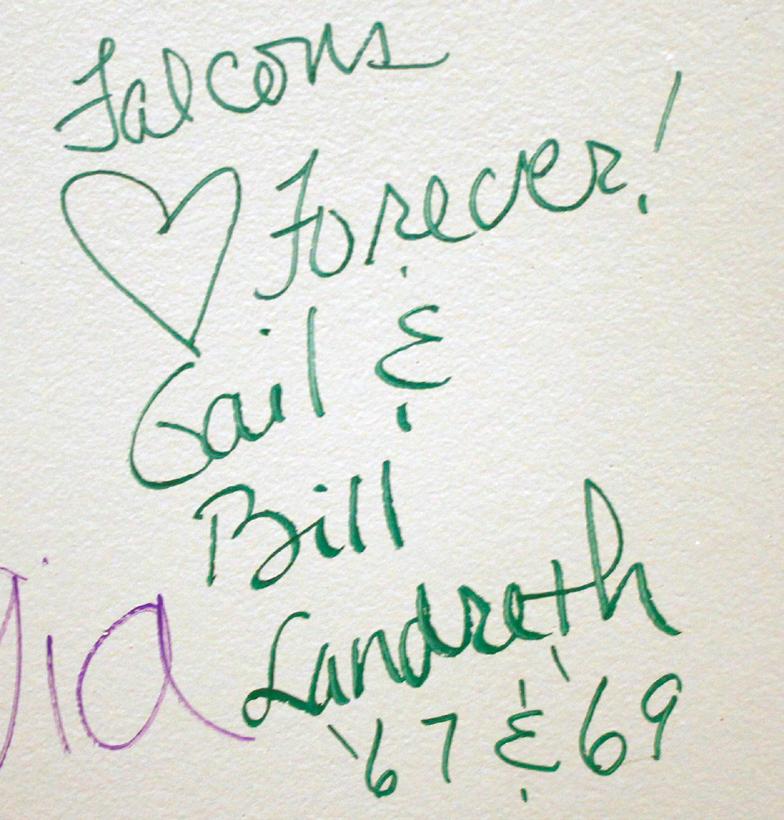 Falcons
♡ Forever!
Gail &
Bill
Landreth
'67 & '69